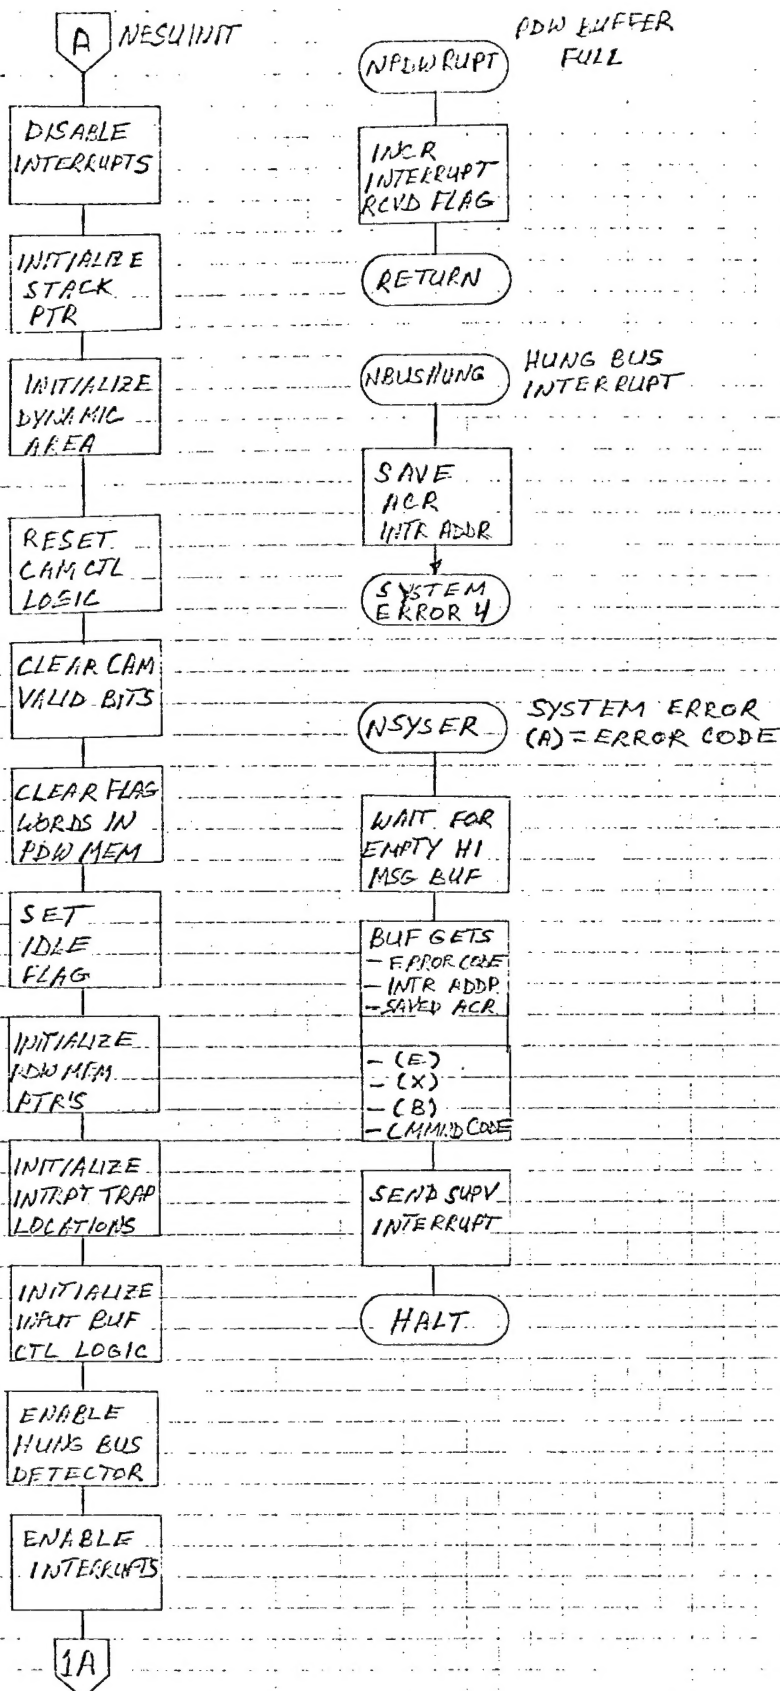 A NESUINIT
DISABLE
INTERRUPTS
INITIALIZE
STACK
PTR
INITIALIZE
DYNAMIC
AREA
RESET
CAM CTL
LOGIC
CLEAR CAM
VALID BITS
CLEAR FLAG
WORDS IN
PDW MEM
SET
IDLE
FLAG
INITIALIZE
PDW MEM
PTR'S
INITIALIZE
INTRPT TRAP
LOCATIONS
INITIALIZE
INPUT BUF
CTL LOGIC
ENABLE
HUNG BUS
DETECTOR
ENABLE
INTERRUPTS
1A
NPDWRUPT
PDW BUFFER
FULL
INCR
INTERRUPT
RCVD FLAG
RETURN
NBUSHUNG
HUNG BUS
INTERRUPT
SAVE
ACR
INTR ADDR
SYSTEM
ERROR 4
NSYSER
SYSTEM ERROR
(A) = ERROR CODE
WAIT FOR
EMPTY HI
MSG BUF
BUF GETS
- ERROR CODE
- INTR ADDR
- SAVED ACR
- (E)
- (X)
- (B)
- CMMND CODE
SEND SUPV
INTERRUPT
HALT